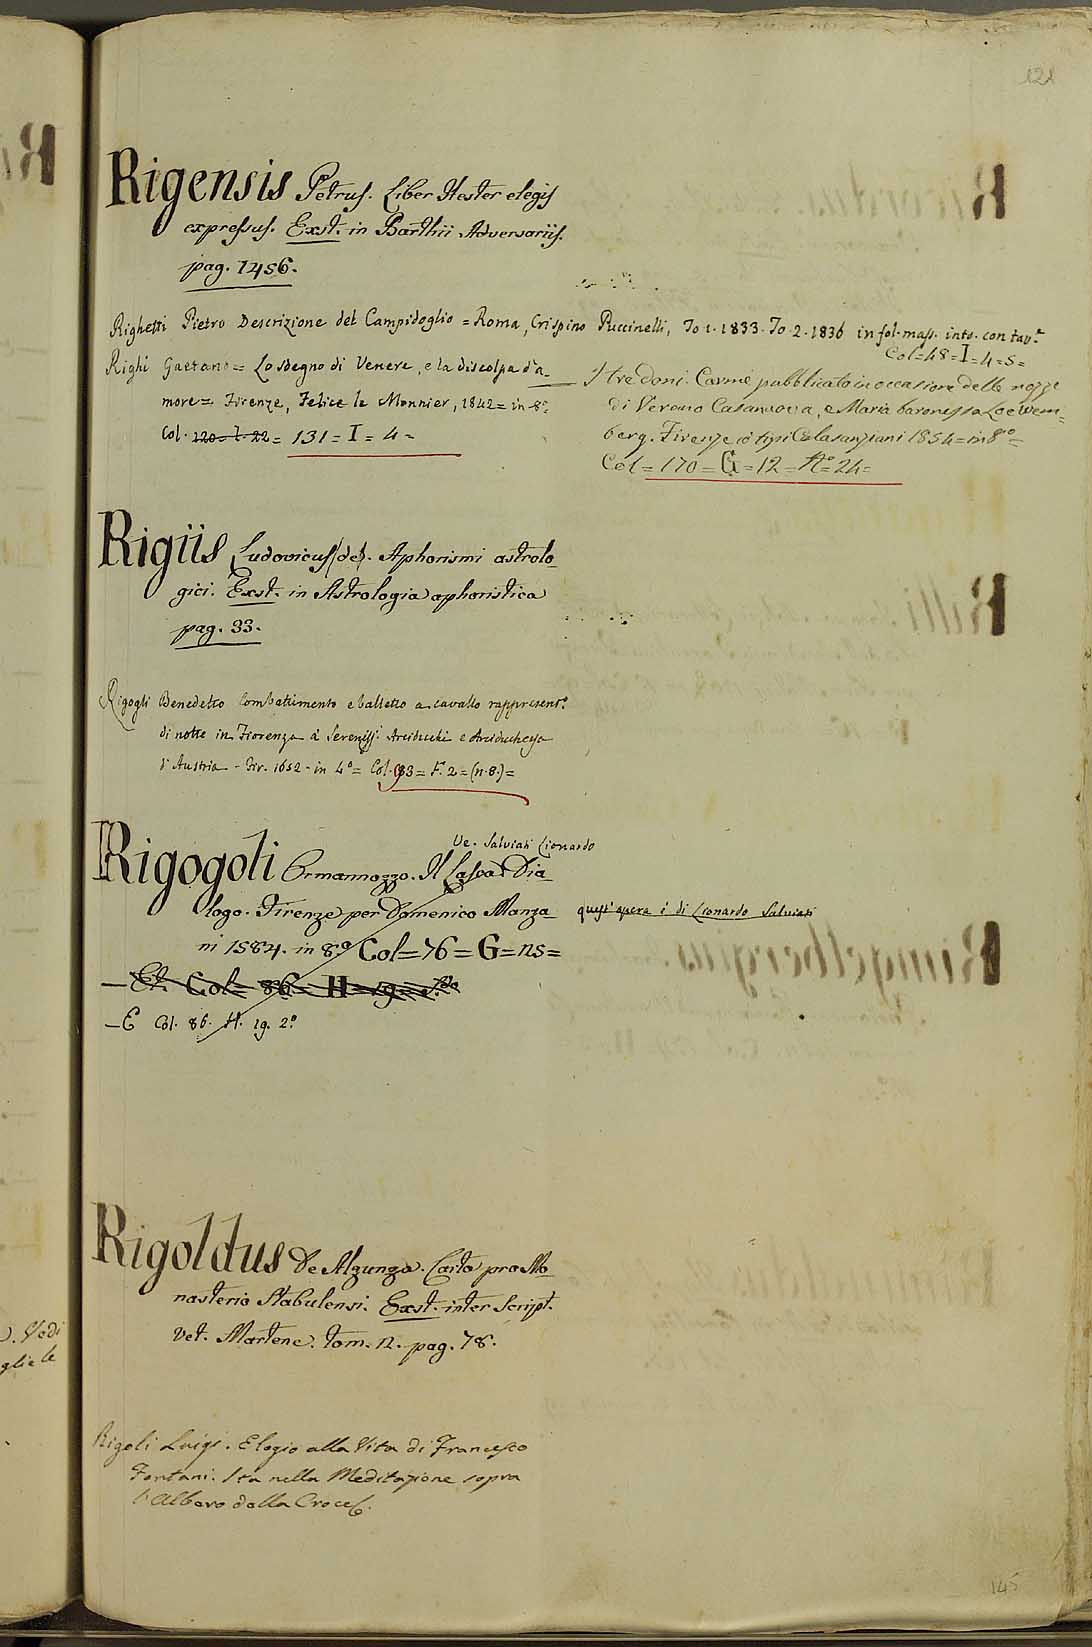 121
Rigensis Petrus. Liber Hester elegis
expressus. Exst. in Barthii Adversariis.
pag. 1456.
Righetti Pietro Descrizione del Campidoglio = Roma, Crispino Puccinelli, To 1. 1833. To. 2. 1836 in fol. mass. into. con tav.e
Col=48=I=4=5=
Righi Gaetano = Lo sdegno di Venere, e la discolpa d'a_
more = Firenze, Felice le Monnier, 1842 = in 8°=
Col. 120=I=22= 131 = I = 4 =
I tre doni. Carme pubblicato in occasione delle nozze
di Verano Casanuova, e Maria baronessa Loewem_
berg. Firenze co' tipi Calasanziani 1854 = in 8°=
Col = 170 = G = 12 = N° = 24 =
Rigiis Ludovicus (de). Aphorismi astrolo_
gici. Exst. in Astrologia aphoristica
pag. 33.
Rigogli Benedetto Combattimento e balletto a cavallo rappresent.°
di notte in Fiorenza a' Sereniss.i Arciduchi e Arciduchessa
d'Austria - Fir. 1652 - in 4° = Col. 93 = F. 2 = (n. 8.) =
Ve. Salviati Lionardo
Rigogoli Ormannozzo. Il Lasca Dia_
logo. Firenze per Domenico Manza_
ni 1584. in 8° Col=76=G=ns=
quest'opera è di Lionardo Salviati
— Et. Col= 86= H=19= 2°
— E Col. 86. H. 19. 2°
Rigoldus De Alzunga. Carta pro Mo_
nasterio Stabulensi. Exst. inter Script.
Vet. Martene. tom. 2. pag. 78.
Rigoli Luigi. Elogio alla Vita di Francesco
Fontani. Sta nella Meditazione sopra
l'Albero della Croce.
. Vedi
glie le
145